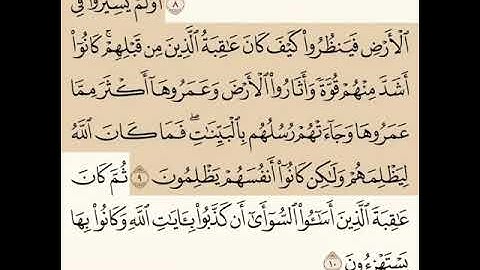 ٨ أَوَلَمْ يَسِيرُوا۟ فِى
ٱلْأَرْضِ فَيَنظُرُوا۟ كَيْفَ كَانَ عَٰقِبَةُ ٱلَّذِينَ مِن قَبْلِهِمْ ۚ كَانُوٓا۟
أَشَدَّ مِنْهُمْ قُوَّةً وَأَثَارُوا۟ ٱلْأَرْضَ وَعَمَرُوهَآ أَكْثَرَ مِمَّا
عَمَرُوهَا وَجَآءَتْهُمْ رُسُلُهُم بِٱلْبَيِّنَٰتِ ۖ فَمَا كَانَ ٱللَّهُ
لِيَظْلِمَهُمْ وَلَٰكِن كَانُوٓا۟ أَنفُسَهُمْ يَظْلِمُونَ ٩ ثُمَّ كَانَ
عَٰقِبَةَ ٱلَّذِينَ أَسَٰٓـُٔوا۟ ٱلسُّوٓأَىٰٓ أَن كَذَّبُوا۟ بِـَٔايَٰتِ ٱللَّهِ وَكَانُوا۟ بِهَا
يَسْتَهْزِءُونَ ١٠